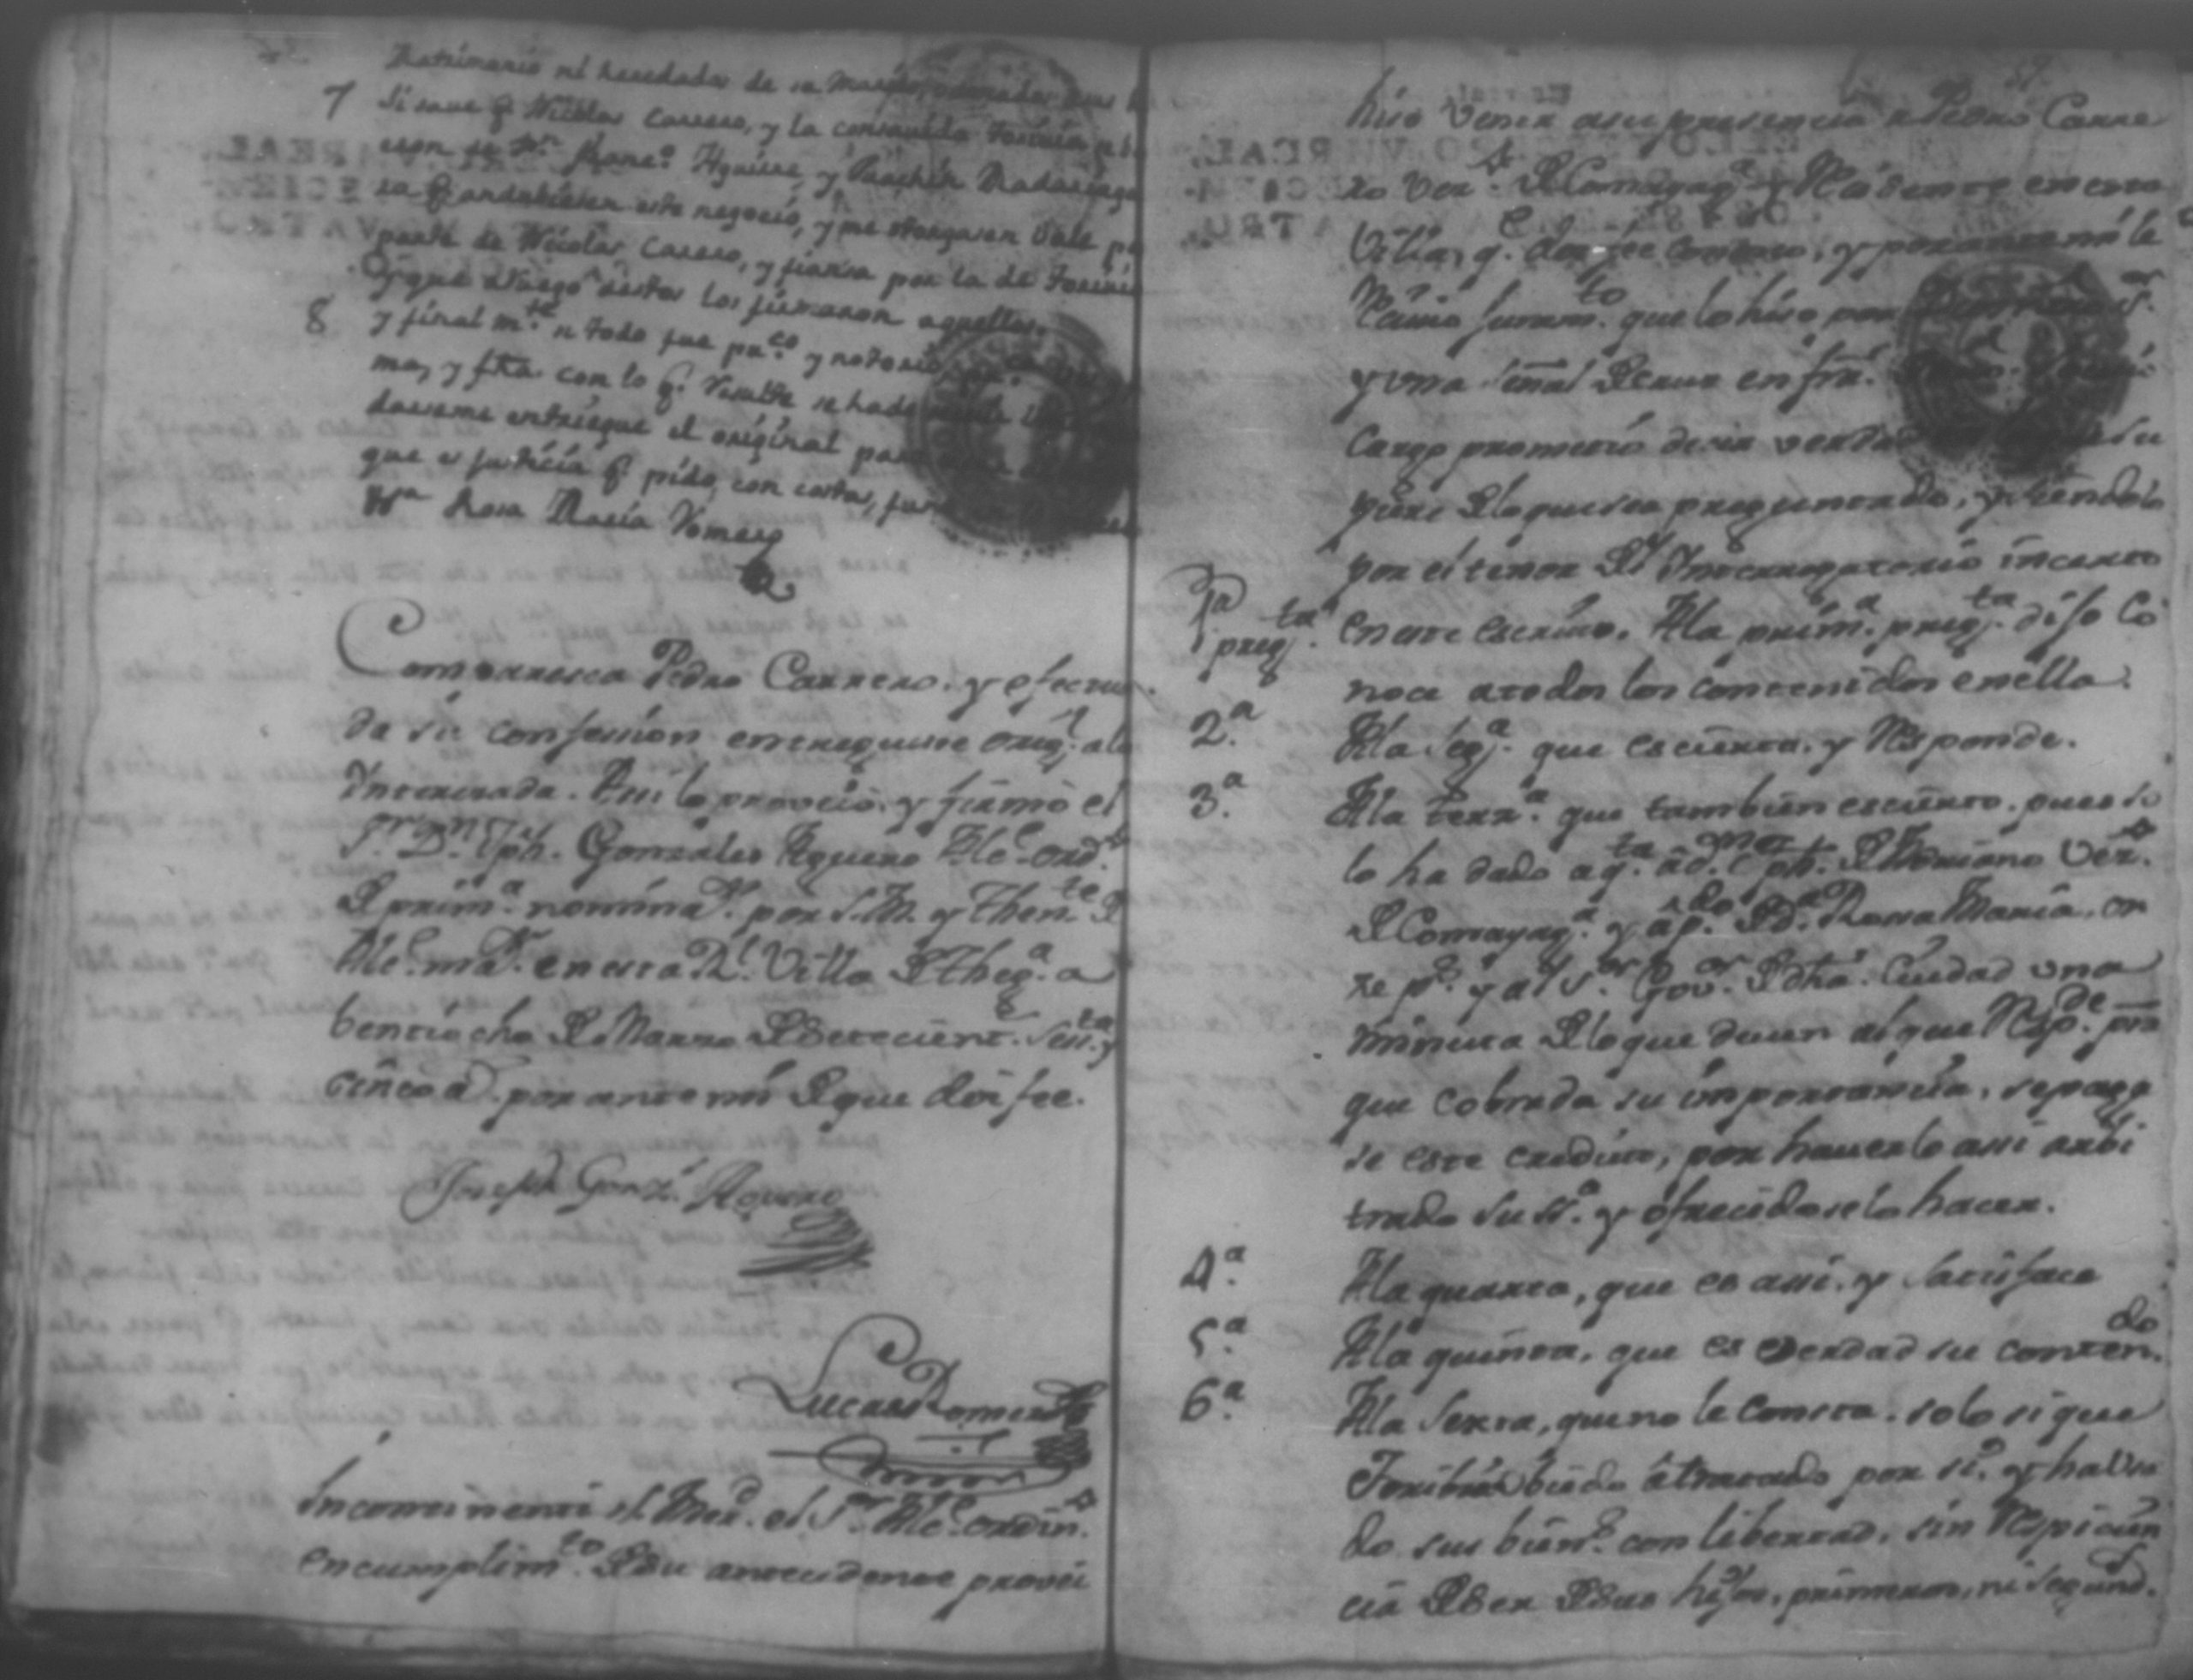 Matrimonio ni heredados de su
7 Si save q.e Nicolas Carrero, y la
eron de Dn. Franc.o Aguirre, y Joachin Madariaga
sa q.e andubiesen este negocio, y me otorgasen Vale p
parte de Nicolas Carrero, y fianza por la de
Y que a Ruego destos los firmaron aquellos.
8 y final m.te a todo fue pu.co y notorio
ma, y fha. con lo q.e Resulte se hade
darseme entriegue el original para
que es justicia q.e pido, con costas, juro
Rosa Maria Romero
Comparesca Pedro Carrero. y efectua
da su confesion entreguese orig.l ala
Interesada. Assi lo proveio. y firmó el
S.r D.n Jph. Gonzales Aguero Alc.e ord.o
de prim.a nomina.n por S.M. y Then.te de
Alc.e ma.r en esta R.l Villa de Theg.a a
bentiocho de Marzo de setecient.s sen.ta y
cinco a.s por ante mi de que doi fee.
Joseph Gonz.s Aguero
Lucas Romero
Incontinenti el S.r Alc.e ordin.o
en cumplim.to de su antecedente provei
hiso venir asu presencia a Pedro Carre
ro Vez.o de Comayag.a y Residente en esta
Villa, q.e doi fee conosco, y por ante mi le
Reciuio juram.to que lo hiso por
y una señal de cruz en fha.
cargo prometió desir verdad su
piere de lo que sea preguntado, y siendolo
por el tenor del Interrogatorio incerto
1.a preg.ta en este escrito. Ala prim.a preg.ta dijo co
noce atodos los contenidos en ella.
2.a Ala seg.a que es cierta. y Responde.
3.a Ala terz.a que tambien es cierto. pues se
lo ha dado
de Comayag.a y D.a Rosa Maria. on
ze p.s y al S.or Gov.or de dha. Ciudad una
minuta de lo que deven al que Resp.de pra
que cobrada su importancia, se paga
se este credito, por haverlo assi arbi
trado su S.a y ofrecidoselo hacer.
4.a Ala quarta, que es assi. y satisface
5.a Ala quinta, que es verdad su conten.do
6.a Ala sexta, que no le consta. solo si que
Toribia a tratado por si. y havi
do sus bien.s con libertad, sin Respicien
cia de ser de sus hijos, primeros, ni segund.s